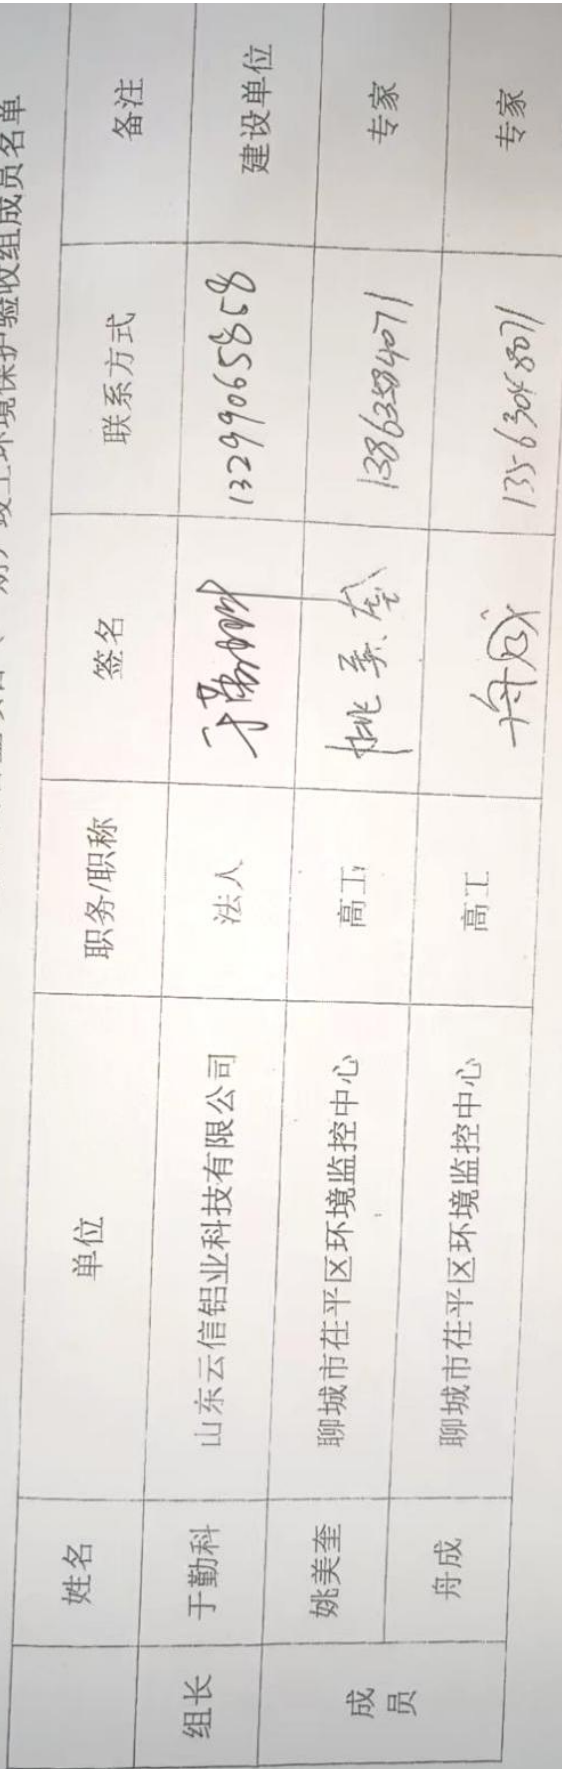 竣工环境保护验收组成员名单
姓名 单位 职务/职称 签名 联系方式 备注
组长 于勤科 山东云信铝业科技有限公司 法人 于勤科 13299065858 建设单位
成员 姚美奎 聊城市茌平区环境监控中心 高工 姚美奎 13863584071 专家
舟成 聊城市茌平区环境监控中心 高工 舟成 13563048071 专家